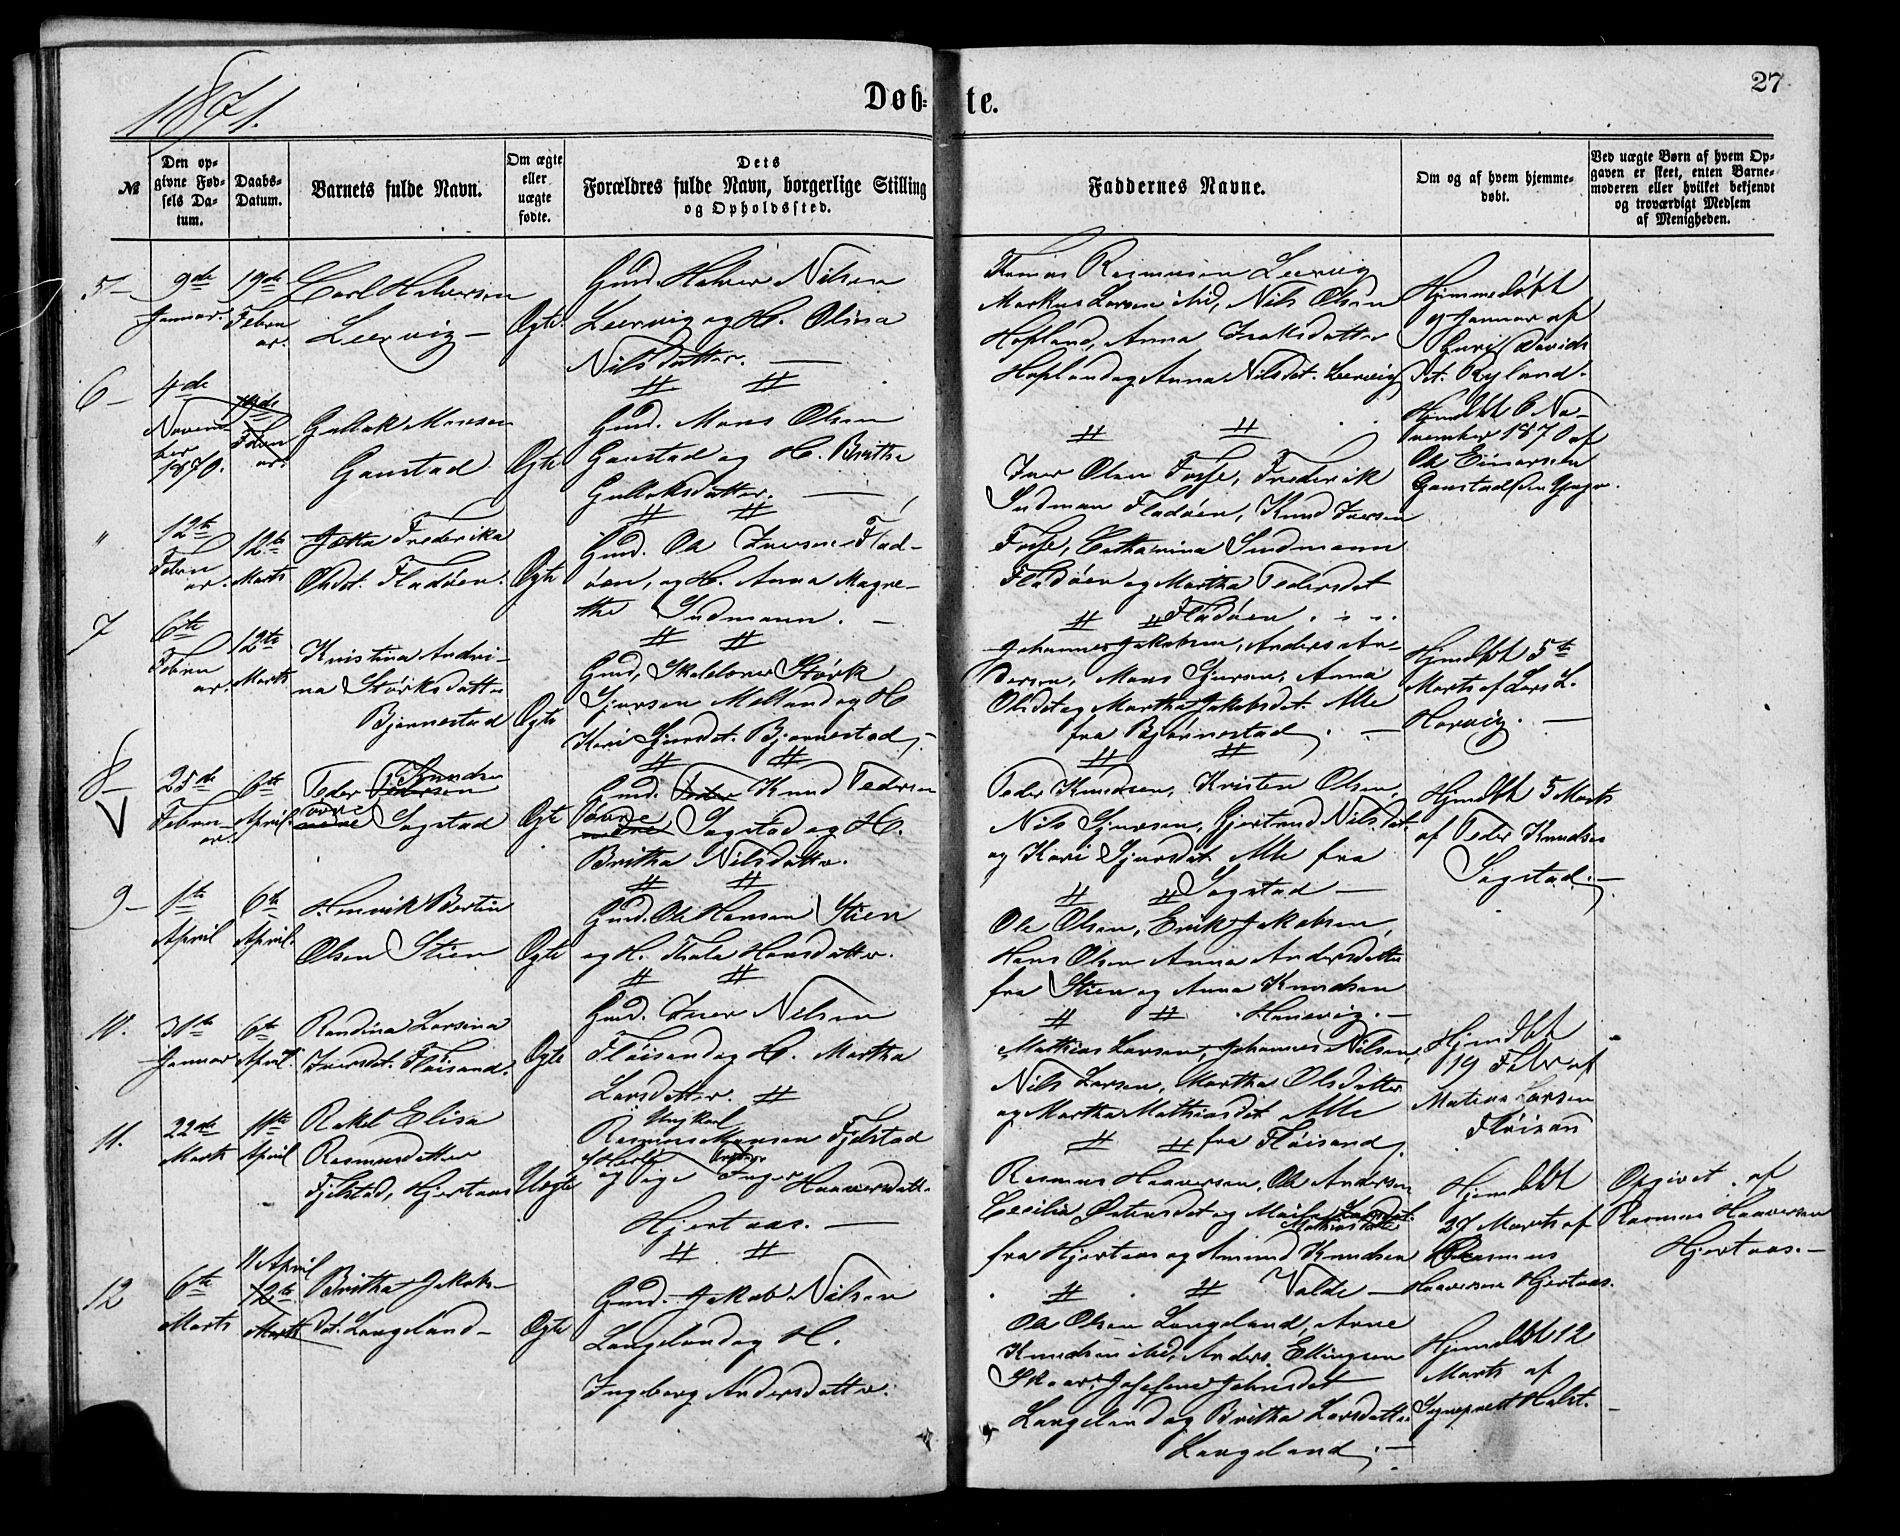 1871.
Døb-
te.
27
№
Den op-
givne Fød-
sels Da-
tum.
Daabs-
Datum.
Barnets fulde Navn.
Om ægte
eller
uægte
fødte.
Dets
Forældres fulde Navn, borgerlige Stilling
og Opholdssted.
Faddernes Navne.
Om og af hvem hjemme-
døbt.
Ved uægte Børn af hvem Op-
gaven er skeet, enten Barne-
moderen eller hvilket bekjendt
og troværdigt Medlem
af Menigheden.
5 –
9de
Januar
19de
Febru
ar.
Carl Halversen
Leervig –
Ægte
Gmd. Halver Nilsen
Leervig og H. Olina
Nilsdatter. –
Rasmusen Leervig
Markus Larsen ibid, Nils Olsen
Hopland, Anna Isaksdatter
Hopland og Anna Nilsdat. Leervig
Hjemmedøbt
9 Januar af
Guri Davids
dat. Ryland.
6 –
4de
Novem-
ber
1870.
19de
Febru
ar.
Gullak Monsen
Ganstad
Ægte
Gmd. Mons Olsen
Ganstad og H. Britha
Gullaksdatter. –
Hjmdbt 6 No-
vember 1870 af
Ole Einarsen
Ganstad den Yngre.
"
12te
Febru
ar.
12te
Marts
Jetta Frederika
Olsdt. Fladøen.
Ægte
Gmd. Ole Iversen Flad-
øen, og H. Anna Magre-
the Sudmann. –
Iver Olsen Fosse, Frederik
Sudman Fladøen, Knud Iversen
Fosse, Catharina Sudmann
Fladøen og Martha Pedersdat
Fladøen.
7
6te
Febru
ar.
12te
Marts
Kristina Andri-
na Størksdatter
Bjørnestad
Ægte
Gmd, Størk
Sjursen Melland og H
Kari Sjursdt. Bjørnestad. –
Johannes Jakobsen, Anders An-
dersen, Mons Sjursen, Anna
Olsdt og Martha Jakobsdt. Alle
fra Bjørnestad. –
Hjmdbt 5te
Marts af Lars L.
Horvig. –
8 –
V
25de
Febru-
ar.
6te
April.
Peder Pedersen Knudsen
øvre Sagstad
Ægte
Gmd. Peder Knud Pedersen
øvre Sagstad og H.
Britha Nilsdatter.
Peder Knudsen, Kristen Olsen,
Nils Sjursen, Gjertrud Nilsdat.
og Kari Sjursdt. Alle fra
Sagstad –
Hjmdbt 5 Marts
af Peder Knudsen
Sagstad. –
9 –
1ste
April
6te
April.
Henrik Bertin
Olsen Stien
Ægte
Gmd. Ole Hansen Stien
og H. Thala Hansdatter.
Ole Olsen, Erik Jakobsen,
Hans Olsen Anna Andersdatter
fra Stien og Anna Knudsen
Hanevig. –
10.
31te
Januar
6te
April.
Randina Larsina
Iversdt. Fløisand.
Ægte
Gmd. Iver Nilsen
Fløisand og H. Martha
Larsdatter.
Mathias Larsen, Johannes Nilsen,
Nils Larsen, Martha Olsdatter
og Martha Mathiasdat Alle
fra Fløisand.
Hjmdbt
19 Febr af
Matias Larsen
Fløisan
11.
22de
Marts
11te
April
Rakel Elisa
Rasmusdatter
Fjelstad, Hjertaas
Uægte
Ungkarl
Rasmus Monsen Fjelstad
og Pige Inger Haaversdatt.
Hjertaas. –
Rasmus Haaversen, Ole Andersen
Cecilia Østensdat og Larsdat.
Mathiasdatter
fra Hjertaas og Amund Knudsen
Valde –
Hjmdbt
27 Marts af
Rasmus
Haaversen Hjertaas.
Opgivet af
Rasmus Haaversen
Hjertaas. –
12
6te
Marts
11 April
12te
Marts
Britha Jakobs-
dt. Langeland –
Ægte
Gmd. Jakob Nilsen
Langeland og H.
Ingeborg Andersdatter.
Ole Olsen Langeland, Arne
Knudsen ibid, Anders Ellingsen
Skaar, Johnsdat
Langeland og Britha Larsdatter
Langeland. –
Hjmdbt 12
Marts af
Sognepræst Holst. –